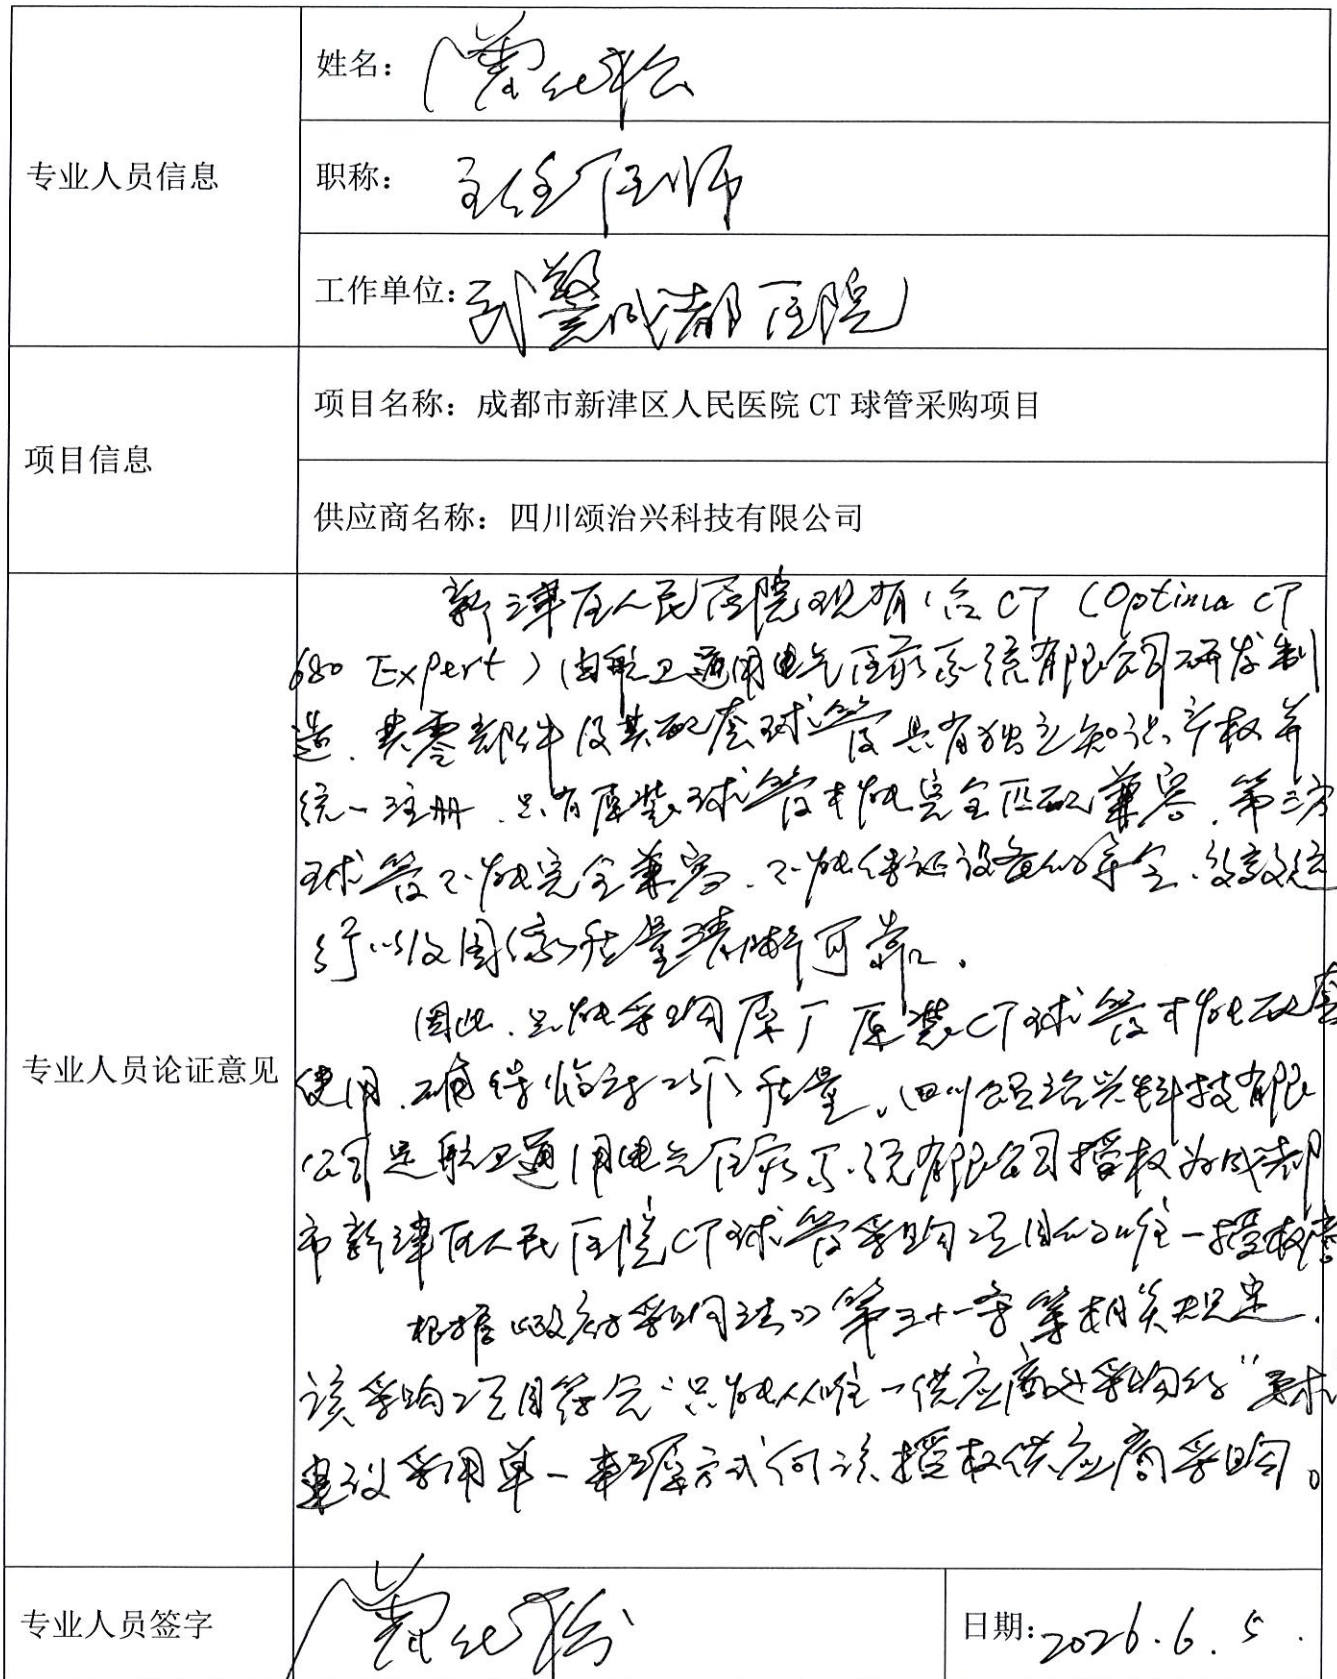 专业人员信息
姓名：
职称：主任医师
工作单位：武警成都医院
项目信息
项目名称：成都市新津区人民医院 CT 球管采购项目
供应商名称：四川颂治兴科技有限公司
专业人员论证意见
新津区人民医院现有1台CT（Optima CT
680 Expert）由航卫通用电气医疗系统有限公司研发制
造．其零部件及其配套球管具有独立知识产权并
统一注册．只有原装球管才能完全匹配兼容．第三方
球管不能完全兼容．不能保证设备的安全．高效运
行以及图像质量清晰可靠．
因此．只能采购原厂原装CT球管才能配套
使用．确保临床工作质量。四川颂治兴科技有限
公司是航卫通用电气医疗系统有限公司授权为成都
市新津区人民医院CT球管采购项目的唯一授权商
根据《政府采购法》第三十一条等相关规定．
该采购项目符合“只能从唯一供应商处采购的”要求
建议采用单一来源方式向该授权供应商采购。
专业人员签字
日期：2026.6.5.